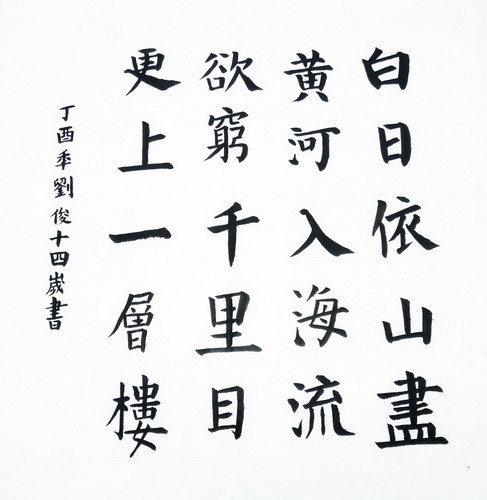 白日依山盡
黄河入海流
欲窮千里目
更上一層樓
丁酉年劉俊十四歲書